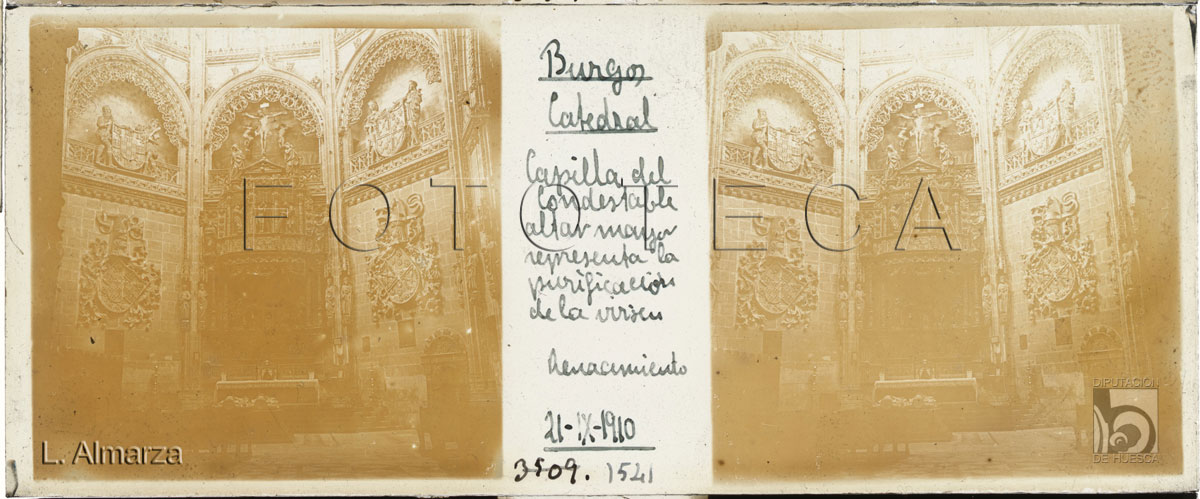 Burgos
Catedral
Capilla del
Condestable
altar mayor
representa la
purificación
de la virgen
Renacimiento
21-IX-1910
3509. 1521
FOTOTECA
L. Almarza
DIPUTACION
DE HUESCA